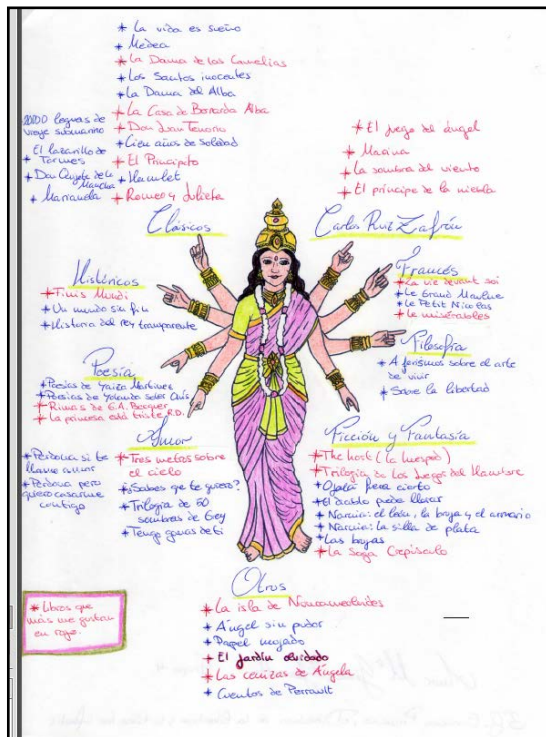 * La vida es sueño
* Medea
* La Dama de las Camelias
* Los Santos inocentes
* La Dama del Alba
* La Casa de Bernarda Alba
* Don Juan Tenorio
* Cien años de soledad
* El Principito
* Hamlet
* Romeo y Julieta
20000 leguas de
viaje submarino
El lazarillo de
* Tormes
* Don Quijote de la
Mancha
* Marianela
Clásicos
* El juego del ángel
* Marina
* La sombra del viento
* El príncipe de la niebla
Carlos Ruiz Zafón
Históricos
* Timis Mundi
* Un mundo sin fin
* Historia del rey transparente
Francés
* La vie devant soi
* Le Grand Maulne
* Le Petit Nicolas
* Le misérables
Filosofía
* Aforismos sobre el arte
de vivir
* Sobre la libertad
Poesía
* Poesías de Yaiza Martínez
* Poesías de Yolanda
* Rimas de G.A. Becquer
* La princesa está triste R.D.
Amor
* Perdona si te
llamo amor
* Perdona pero
quiero casarme
contigo
* Tres metros sobre
el cielo
* ¿Sabes que te quiero?
* Trilogía de 50
sombras de Grey
* Tengo ganas de ti
Ficción y Fantasía
* The host (La huesped)
* Trilogía de Los Juegos del Hambre
* Ojalá fuera cierto
* El diablo puede llorar
* Narnia: el león, la bruja y el armario
* Narnia: la silla de plata
* Las brujas
* La saga Crepúsculo
Otros
* La isla de
* Ángel sin pudor
* Papel mojado
* El jardín olvidado
* Las cenizas de Ángela
* Cuentos de Perrault
* Libros que
más me gustan
en rojo.